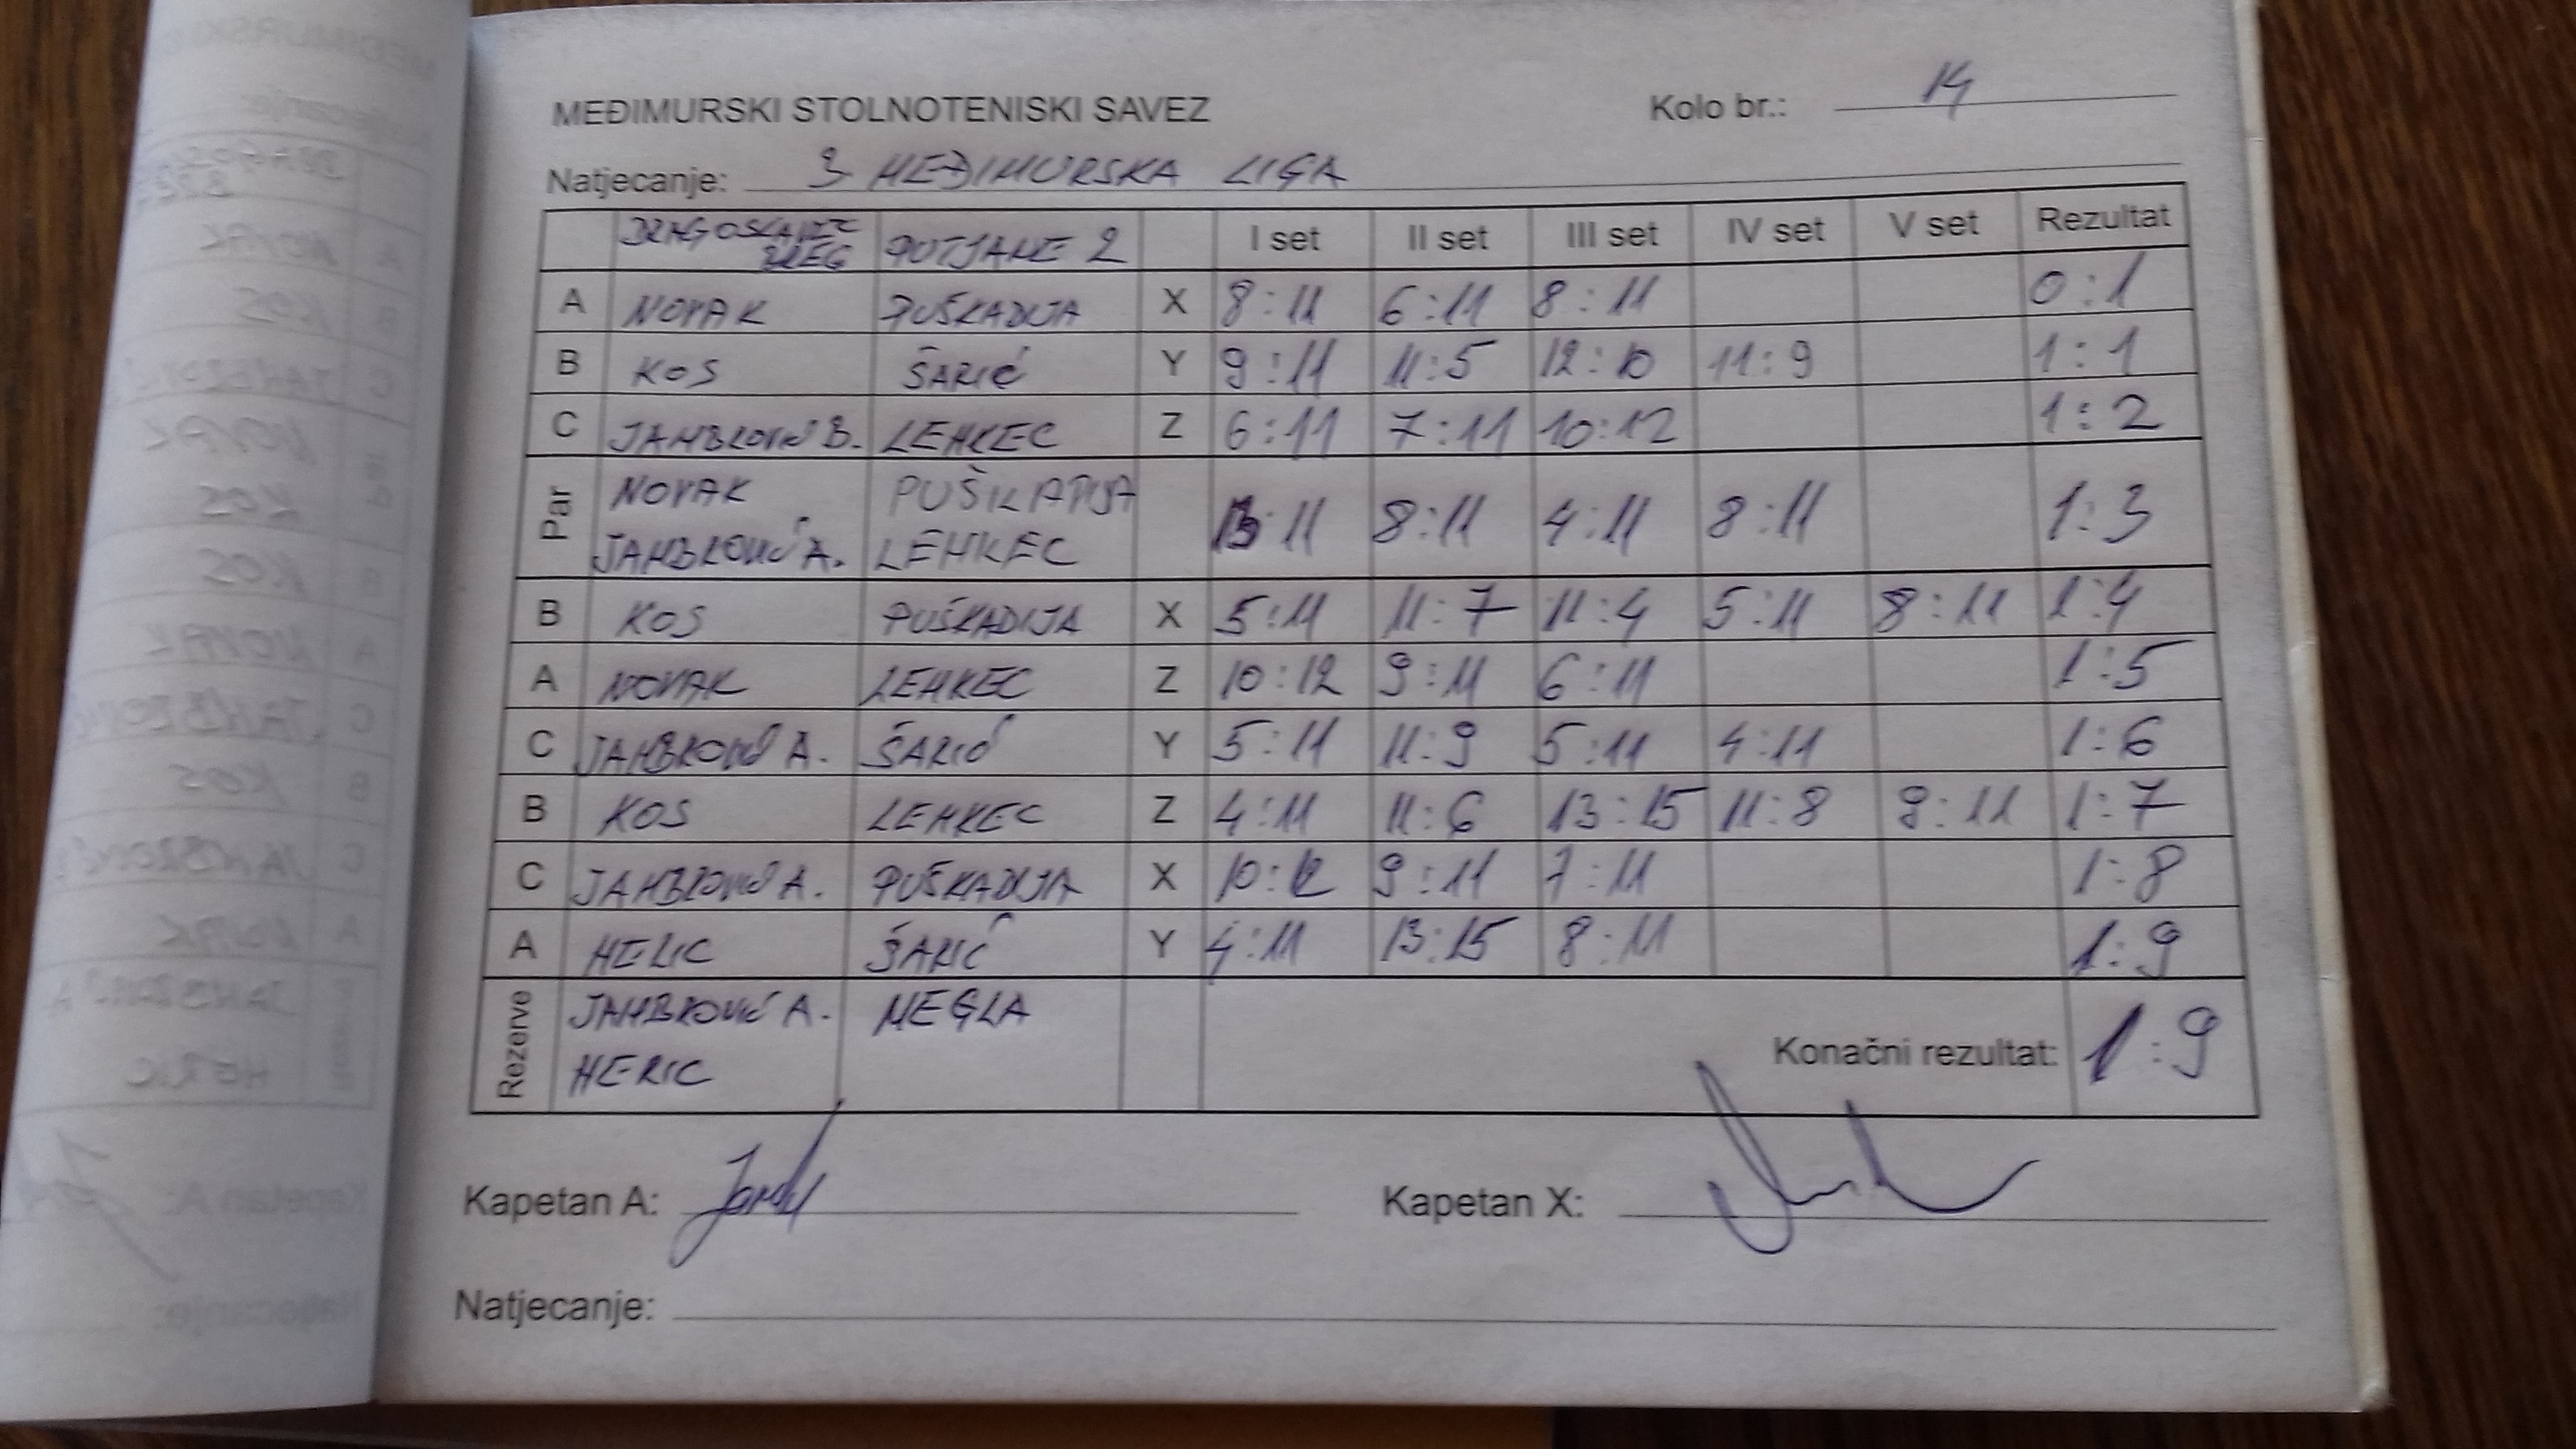 MEĐIMURSKI STOLNOTENISKI SAVEZ Kolo br.: 14
Natjecanje: 3 MEĐIMURSKA LIGA
DRAGOSLAVEC BREG PUTJANE 2 I set II set III set IV set V set Rezultat
A NOVAK PUŠKADIJA X 8:11 6:11 8:11 0:1
B KOS ŠARIĆ Y 9:11 11:5 12:10 11:9 1:1
C JAMBROVIĆ B. LEHKEC Z 6:11 7:11 10:12 1:2
Par NOVAK PUŠKADIJA
JAMBROVIĆ A. LEHKEC 13:11 8:11 4:11 8:11 1:3
B KOS PUŠKADIJA X 5:11 11:7 11:4 5:11 8:11 1:4
A NOVAK LEHKEC Z 10:12 9:11 6:11 1:5
C JAMBROVIĆ A. ŠARIĆ Y 5:11 11:9 5:11 4:11 1:6
B KOS LEHKEC Z 4:11 11:6 13:15 11:8 9:11 1:7
C JAMBROVIĆ A. PUŠKADIJA X 10:12 9:11 7:11 1:8
A HERIC ŠARIĆ Y 4:11 13:15 8:11 1:9
Rezerve JAMBROVIĆ A. MEGLA
HERIC Konačni rezultat: 1:9
Kapetan A: Kapetan X:
Natjecanje: